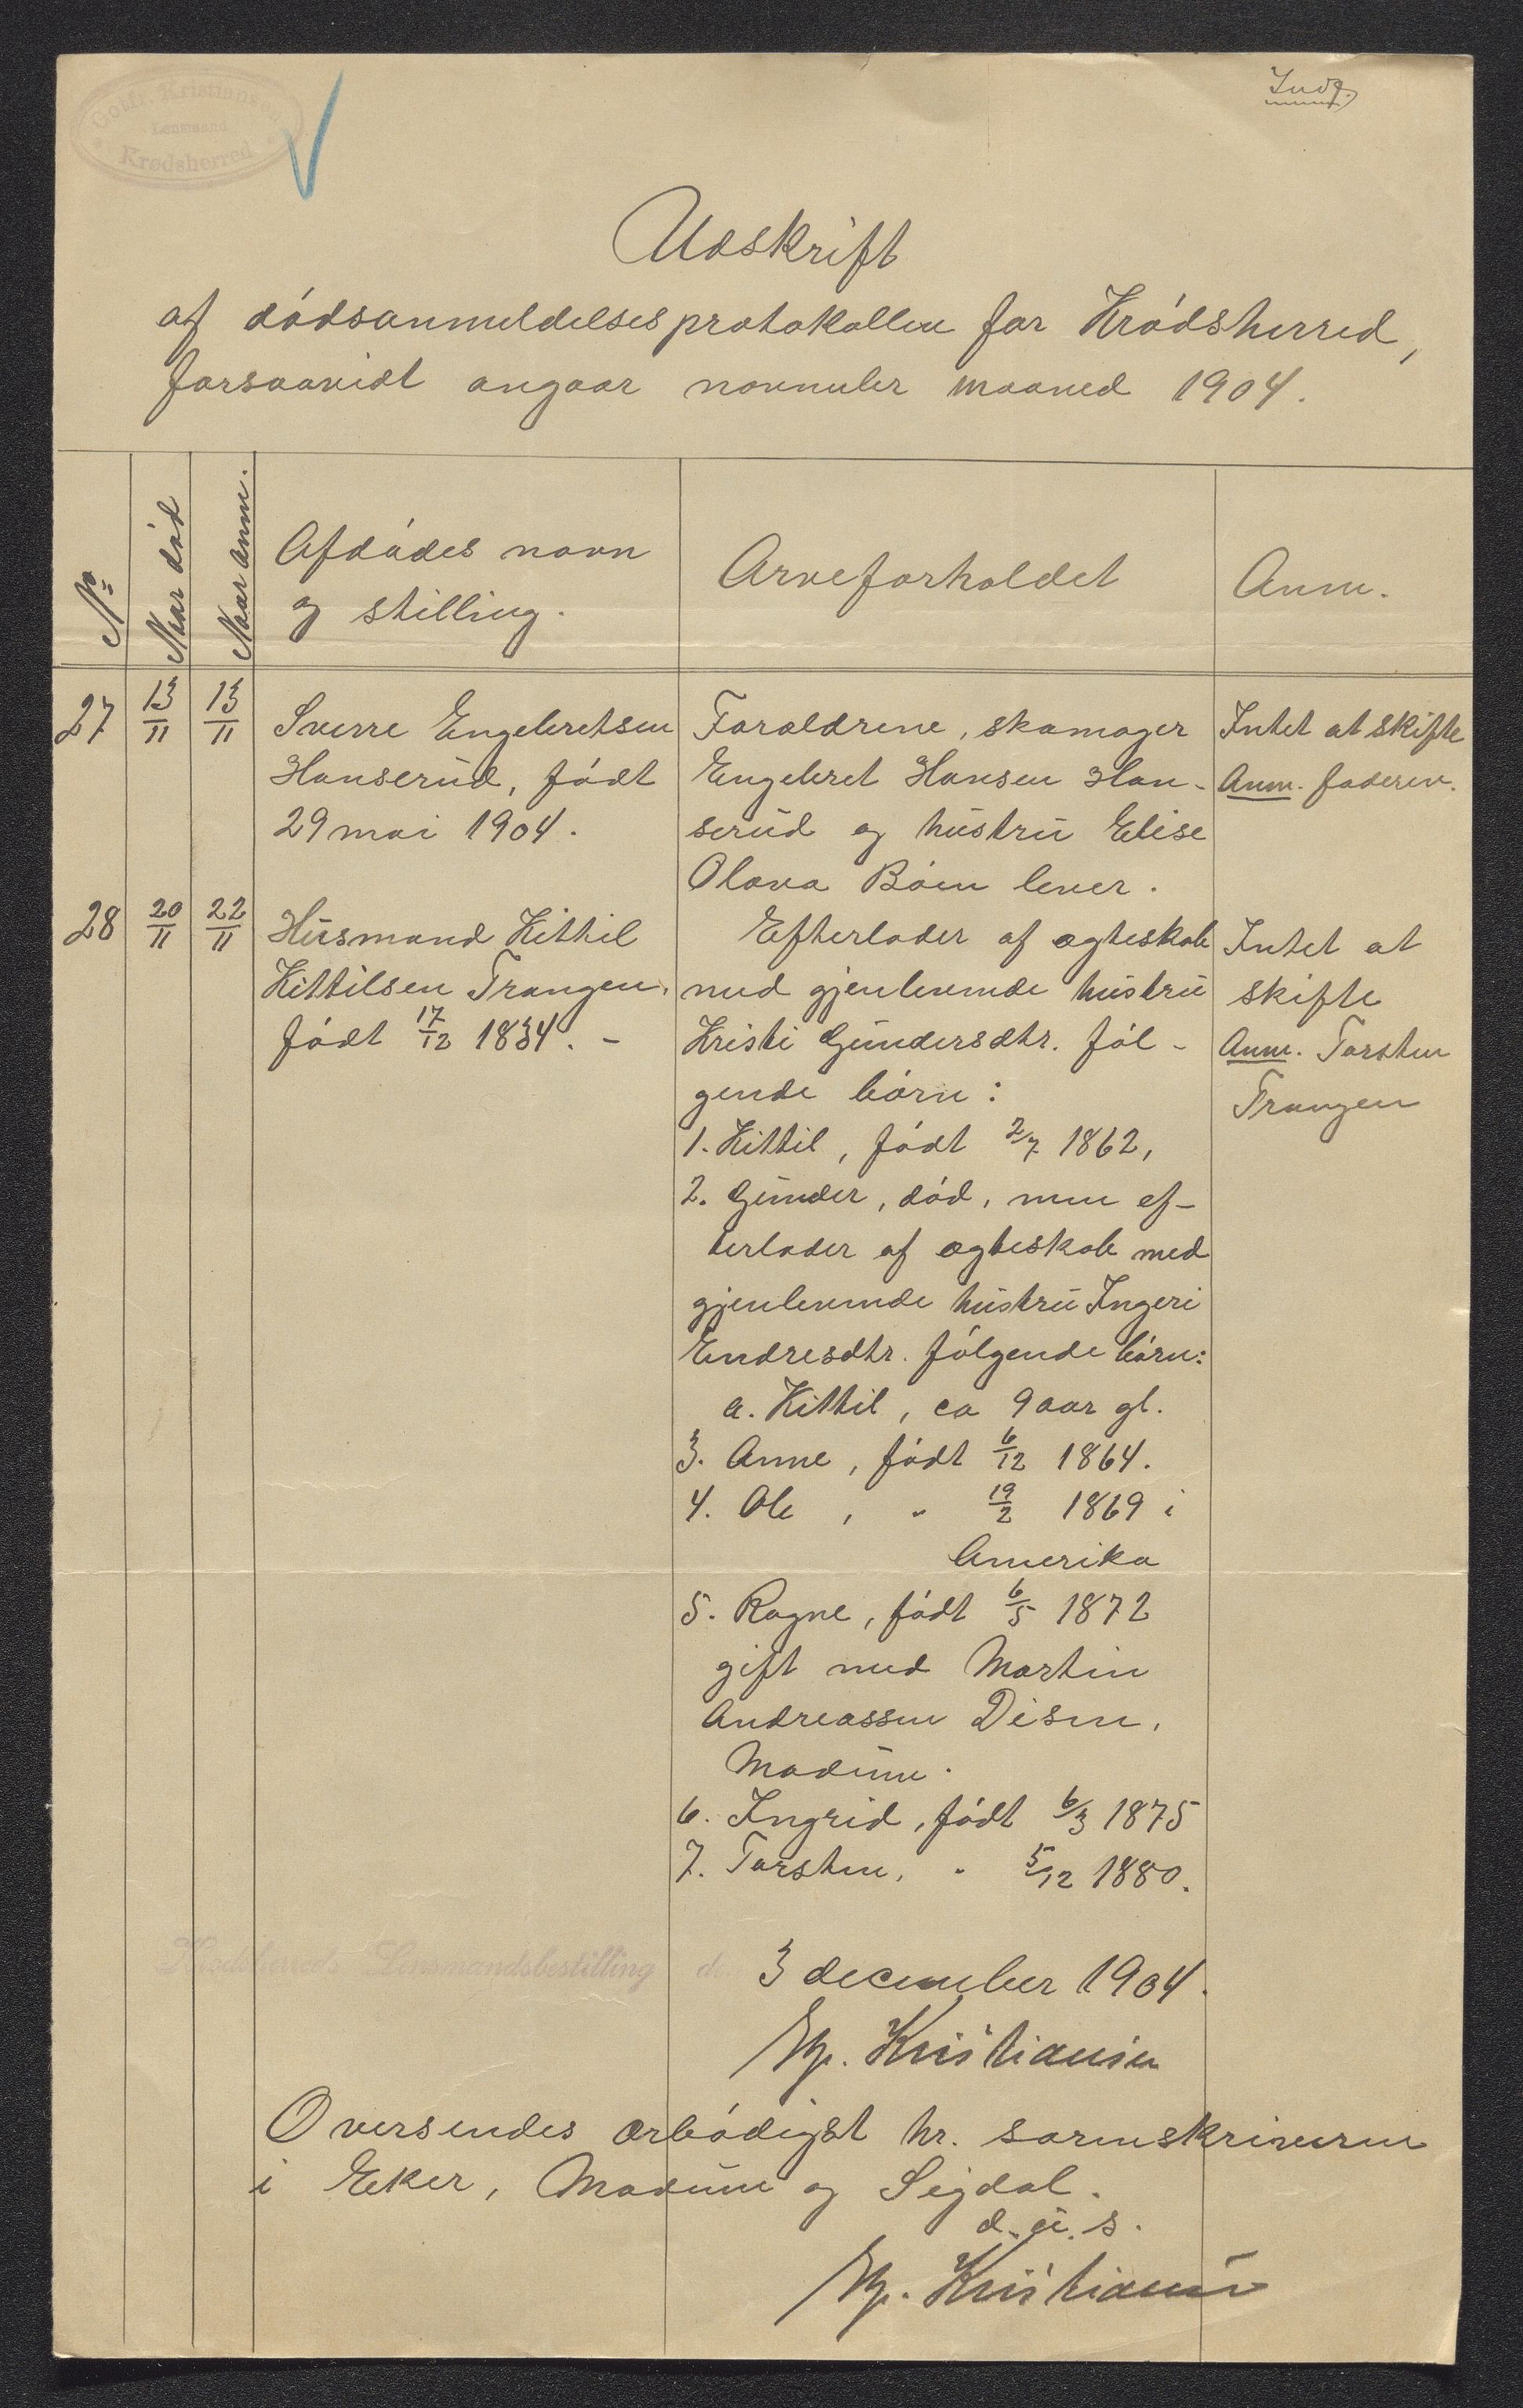 Gottf. Kristiansen
Lensmand
Krødsherred
Indf.
Udskrift
af dødsanmeldelsesprotokollen for Krødsherred,
forsaavidt angaar november maaned 1904.
No
Naar død
Naar anm.
Afdødes navn
og stilling.
Arveforholdet
Anm.
27
13/11
13/11
Sverre Engebretsen
Hanserud, født
29 mai 1904.
Forældrene, skomager
Engebret Hansen Han-
serud og hustru Elise
Olava Bøen lever.
Intet at skifte
Anm. faderen.
28
20/11
22/11
Husmand Kittil
Kittilsen Trangen,
født 17/12 1834. -
Efterlader af ægteskab
med gjenlevende hustru
Kristi Gundersdtr. føl-
gende børn:
1. Kittil, født 2/7 1862,
2. Gunder, død, men ef-
terlader af ægteskab med
gjenlevende hustru Ingeri
Endresdtr. følgende børn:
a. Kittil, ca 9 aar gl.
3. Anne, født 6/12 1864.
4. Ole, " 19/2 1869 i
Amerika
5. Ragne, født 6/5 1872
gift med Martin
Andreassen Disen,
Modum.
6. Ingrid, født 6/3 1875
7. Torsten, " 5/12 1880.
Intet at
skifte
Anm. Torsten
Trangen
Krødsherreds Lensmandsbestilling d. 3 december 1904.
Kristiansen
Oversendes ærbødigst hr. sorenskriveren
i Eker, Modum og Sigdal.
d. u. s.
Kristiansen